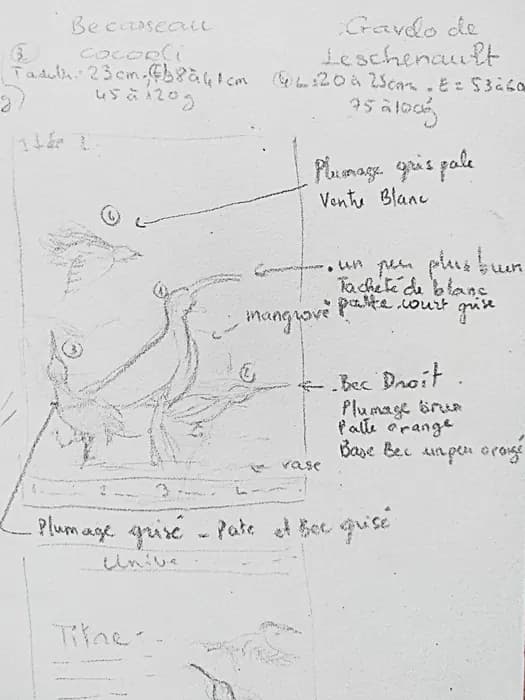 Becasseau
cocorli
③
T adulte: 23cm, E 38 à 41 cm
45 à 120g
Gravelo de
Leschenault
④ L: 20 à 25cm. E = 53 à 60
75 à 100g
Plumage gris pale
Ventre Blanc
④
. un peu plus brun
Tacheté de blanc
patte court grise
①
mangrove
③
②
. Bec Droit
Plumage brun
Patte orange
Base Bec un peu orangé
vase
1 -- 2 -- 3 -- 4 --
Plumage grisé - Pate et Bec grisé
Titre --